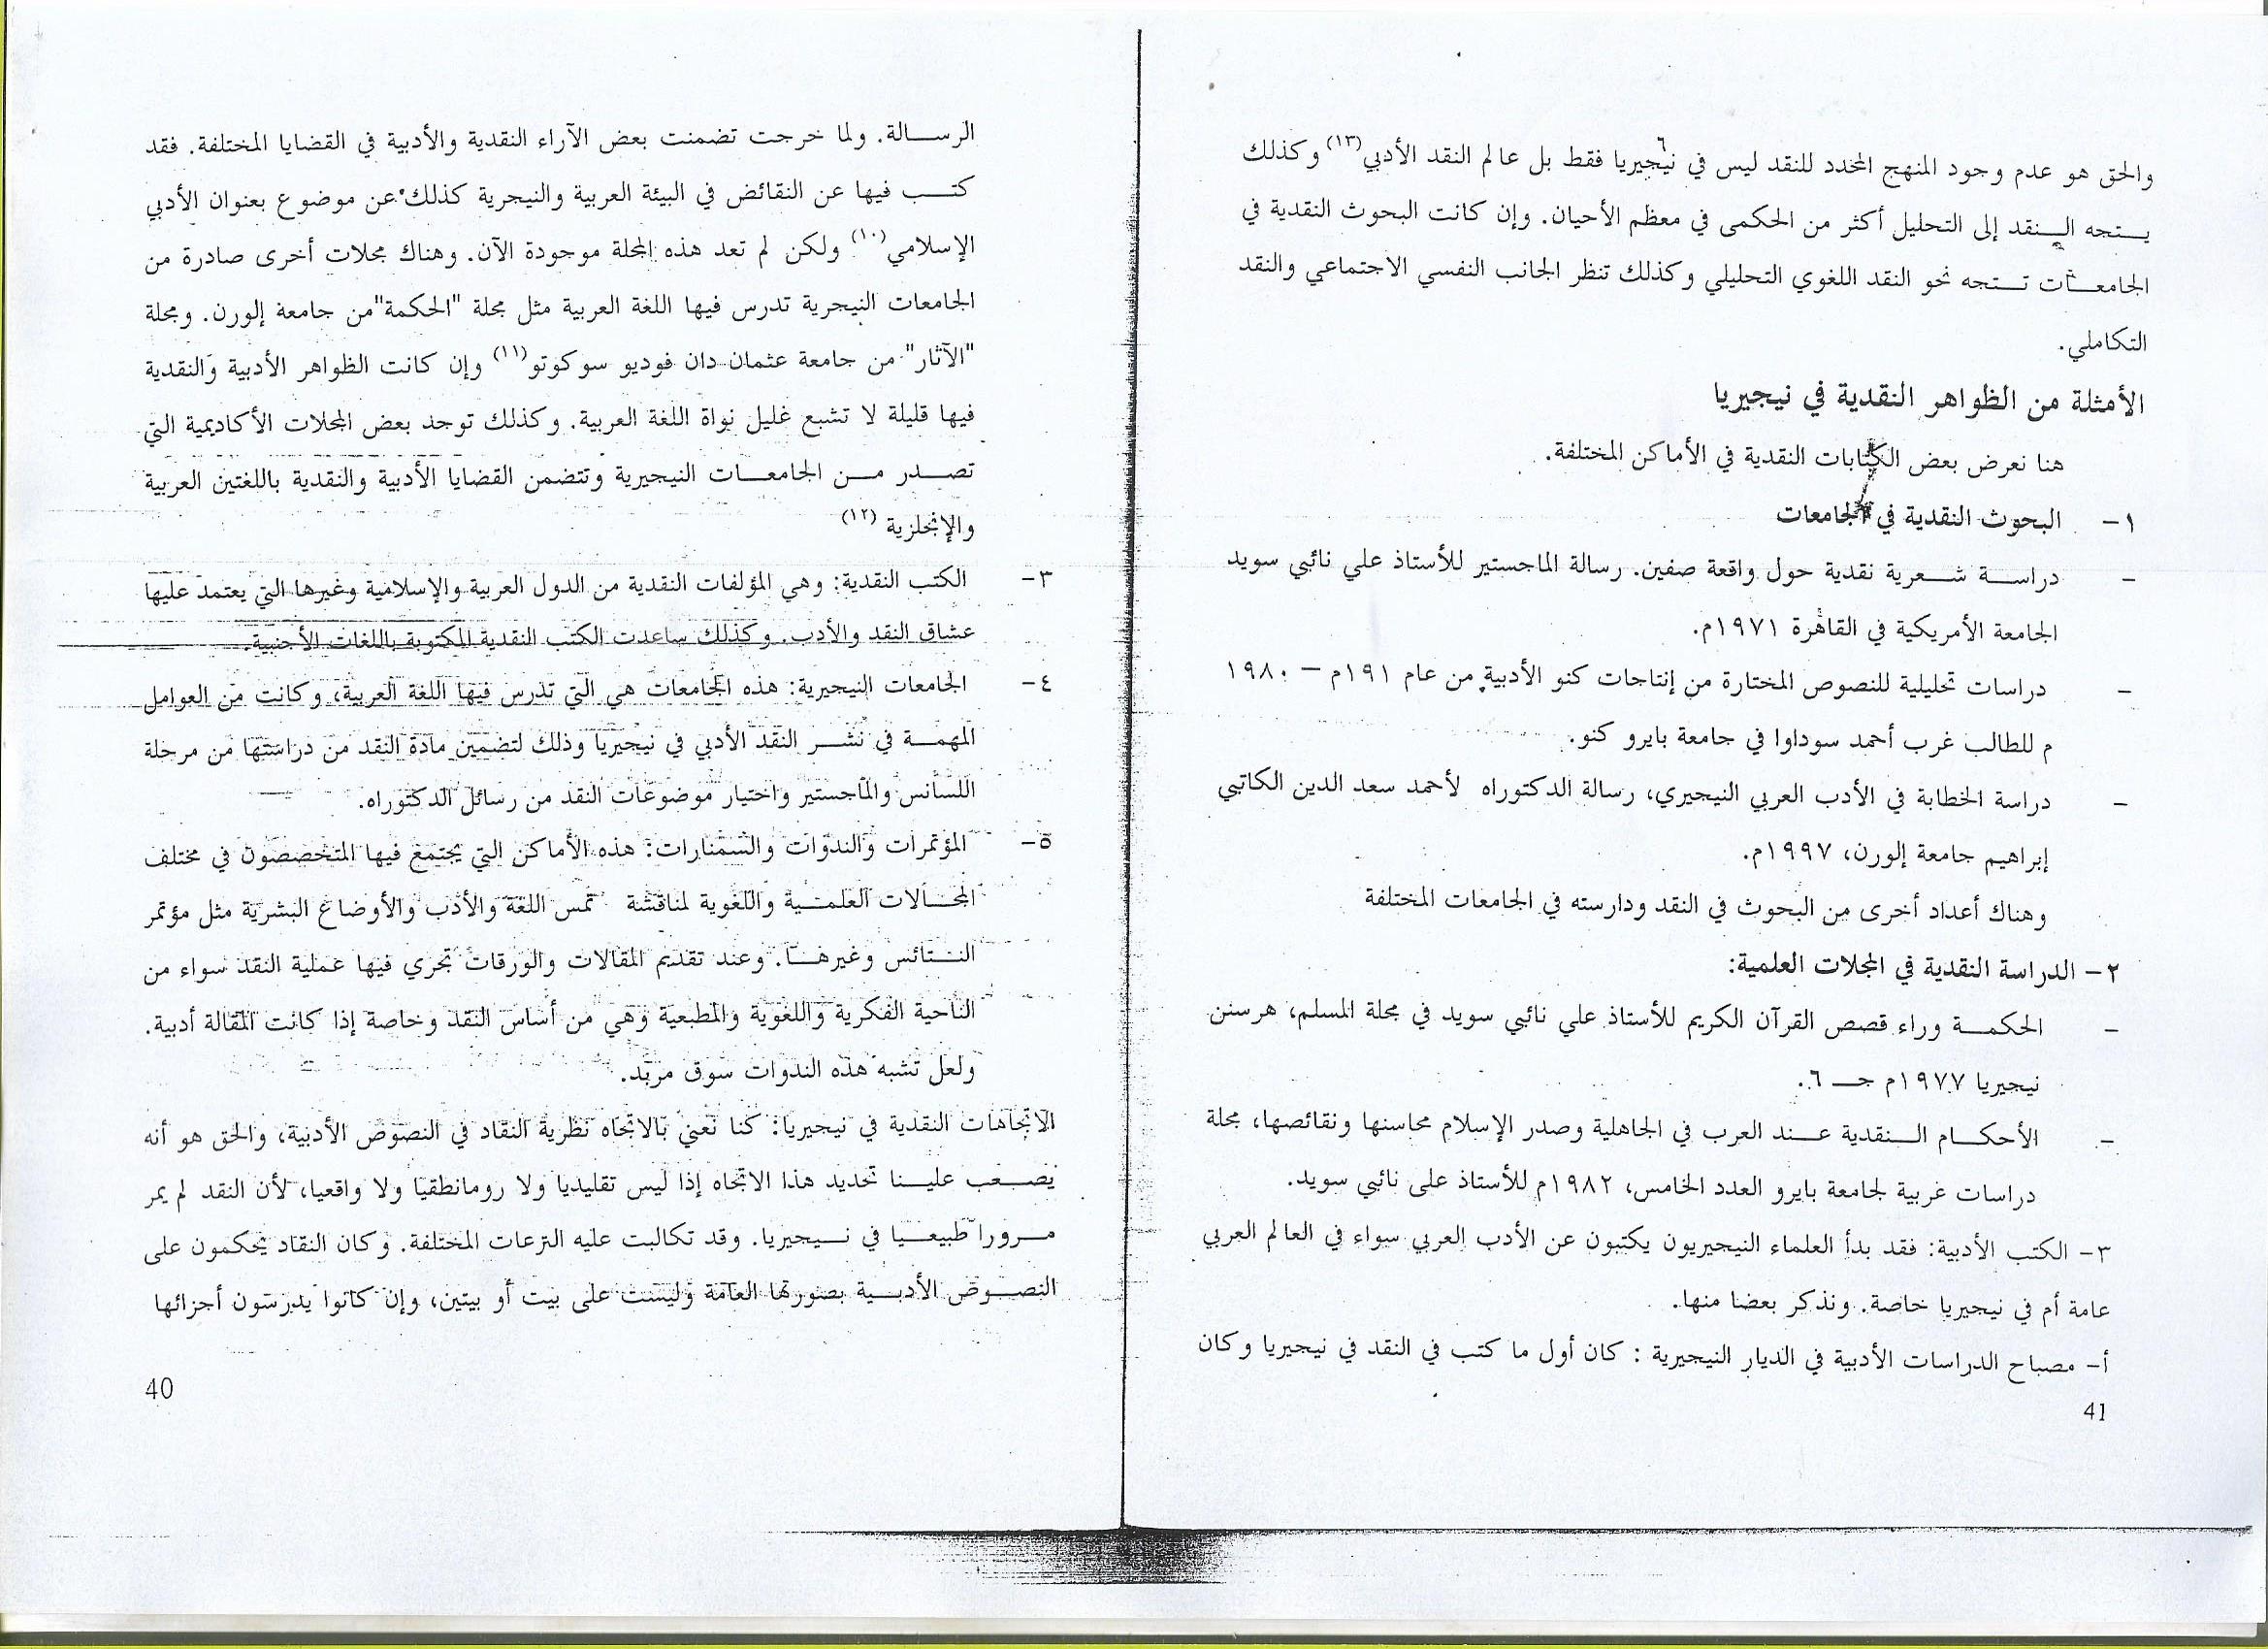 الرسالة. ولما خرجت تضمنت بعض الآراء النقدية والأدبية في القضايا المختلفة. فقد
كتب فيها عن النقائض في البيئة العربية والنيجرية كذلك عن موضوع بعنوان الأدبي
الإسلامي(١٠) ولكن لم تعد هذه المجلة موجودة الآن. وهناك مجلات أخرى صادرة من
الجامعات النيجرية تدرس فيها اللغة العربية مثل مجلة "الحكمة"من جامعة إلورن. ومجلة
"الآثار" من جامعة عثمان دان فوديو سوكوتو(١١) وإن كانت الظواهر الأدبية والنقدية
فيها قليلة لا تشبع غليل نواة اللغة العربية. وكذلك توجد بعض المجلات الأكاديمية التي
تصدر من الجامعات النيجيرية وتتضمن القضايا الأدبية والنقدية باللغتين العربية
والإنجلزية (١٢)
٣- الكتب النقدية: وهي المؤلفات النقدية من الدول العربية والإسلامية وغيرها التي يعتمد عليها
عشاق النقد والأدب. وكذلك ساعدت الكتب النقدية المكتوبة باللغات الأجنبية.
٤- الجامعات النيجيرية: هذه الجامعات هي التي تدرس فيها اللغة العربية، وكانت من العوامل
المهمة في نشر النقد الأدبي في نيجيريا وذلك لتضمين مادة النقد من دراستها من مرحلة
اللسانس والماجستير واختيار موضوعات النقد من رسائل الدكتوراه.
٥- المؤتمرات والندوات والسمنارات: هذه الأماكن التي يجتمع فيها المتخصصون في مختلف
المجالات العلمية واللغوية لمناقشة تمس اللغة والأدب والأوضاع البشرية مثل مؤتمر
النتائس وغيرها. وعند تقديم المقالات والورقات تجري فيها عملية النقد سواء من
الناحية الفكرية واللغوية والمطبعية وهي من أساس النقد وخاصة إذا كانت المقالة أدبية.
ولعل تشبه هذه الندوات سوق مربد.
الاتجاهات النقدية في نيجيريا: كنا نعني بالاتجاه نظرية النقاد في النصوص الأدبية، والحق هو أنه
يصعب علينا تحديد هذا الاتجاه إذا ليس تقليديا ولا رومانطقيا ولا واقعيا، لأن النقد لم يمر
مرورا طبيعيا في نيجيريا. وقد تكالبت عليه النزعات المختلفة. وكان النقاد يحكمون على
النصوص الأدبية بصورتها العامة وليست على بيت أو بيتين، وإن كانوا يدرسون أجزائها
40
والحق هو عدم وجود المنهج المحدد للنقد ليس في نيجيريا فقط بل عالم النقد الأدبي(١٣) وكذلك
يتجه النقد إلى التحليل أكثر من الحكمى في معظم الأحيان. وإن كانت البحوث النقدية في
الجامعات تتجه نحو النقد اللغوي التحليلي وكذلك تنظر الجانب النفسي الاجتماعي والنقد
التكاملي.
الأمثلة من الظواهر النقدية في نيجيريا
هنا نعرض بعض الكتابات النقدية في الأماكن المختلفة.
١- البحوث النقدية في الجامعات
- دراسة شعرية نقدية حول واقعة صفين. رسالة الماجستير للأستاذ علي نائبي سويد
الجامعة الأمريكية في القاهرة ١٩٧١م.
- دراسات تحليلية للنصوص المختارة من إنتاجات كنو الأدبية من عام ١٩١م – ١٩٨٠
م للطالب غرب أحمد سوداوا في جامعة بايرو كنو.
- دراسة الخطابة في الأدب العربي النيجيري، رسالة الدكتوراه لأحمد سعد الدين الكاتبي
إبراهيم جامعة إلورن، ١٩٩٧م.
وهناك أعداد أخرى من البحوث في النقد ودارسته في الجامعات المختلفة
٢- الدراسة النقدية في المجلات العلمية:
- الحكمة وراء قصص القرآن الكريم للأستاذ علي نائبي سويد في مجلة المسلم، هرسنن
نيجيريا ١٩٧٧م جـ ٦.
- الأحكام النقدية عند العرب في الجاهلية وصدر الإسلام محاسنها ونقائصها، مجلة
دراسات عربية لجامعة بايرو العدد الخامس، ١٩٨٢م للأستاذ على نائبي سويد.
٣- الكتب الأدبية: فقد بدأ العلماء النيجيريون يكتبون عن الأدب العربي سواء في العالم العربي
عامة أم في نيجيريا خاصة. ونذكر بعضا منها.
أ- مصباح الدراسات الأدبية في الديار النيجيرية : كان أول ما كتب في النقد في نيجيريا وكان
41